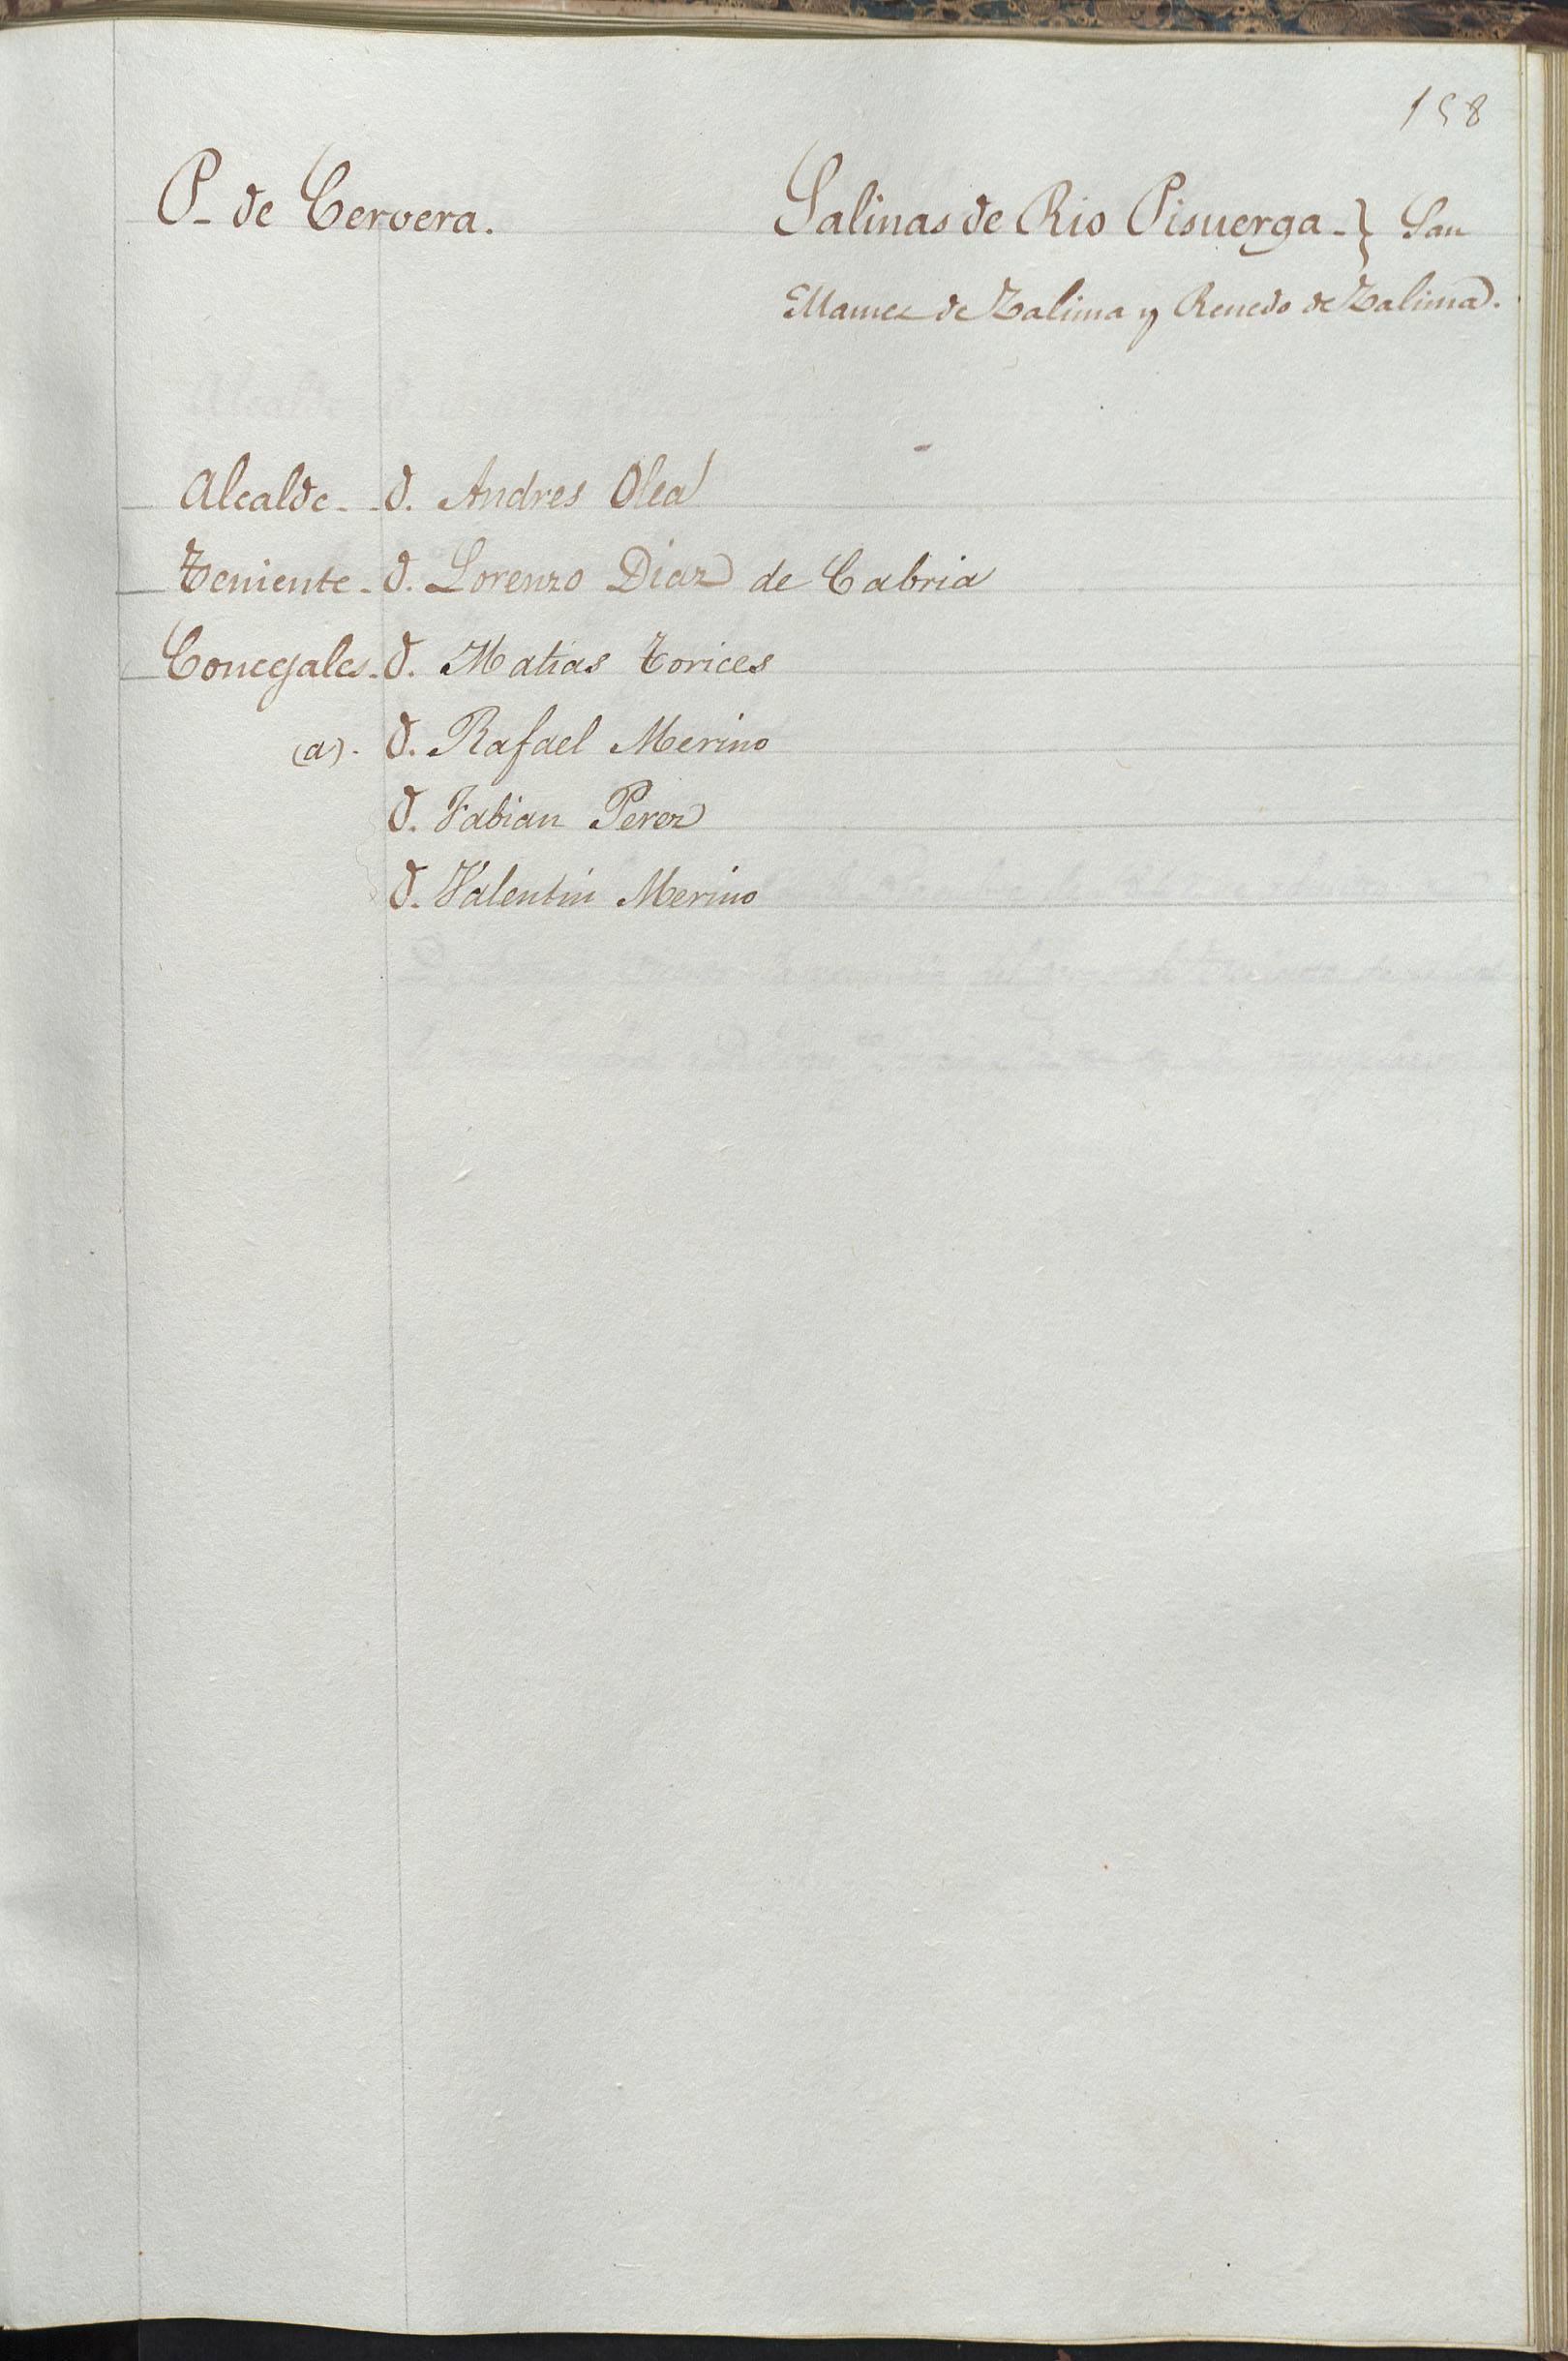 158
P- de Cervera.
Salinas de Rio Pisuerga -} San
Mames de Zalima y Renedo de Zalima.
Alcalde - - D. Andres Olea
Teniente - D. Lorenzo Diaz de Cabria
Concejales - D. Matias Torices
(a) - D. Rafael Merino
D. Fabian Perez
D. Valentin Merino